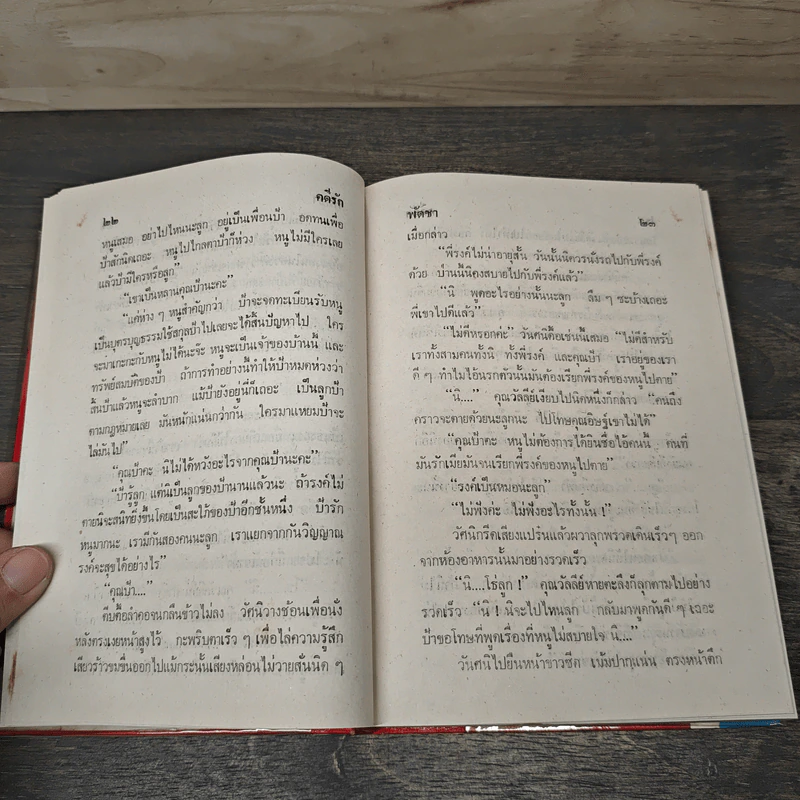 ๒๒ คดีรัก
หนูเสมอ อย่าไปไหนนะลูก อยู่เป็นเพื่อนป้า อดทนเพื่อ
ป้าสักนิดเถอะ หนูไปไกลตาป้าก็ห่วง หนูไม่มีใครเลย
แล้วป้ามีใครหรือลูก”
“เขาเป็นหลานคุณป้านะคะ”
“แค่ห่าง ๆ หนูสำคัญกว่า ป้าจะจดทะเบียนรับหนู
เป็นบุตรบุญธรรมใช้สกุลป้าไปเลยจะได้สิ้นปัญหาไป ใคร
จะมาเกะกะกับหนูไม่ได้นะจ๊ะ หนูจะเป็นเจ้าของบ้านนี้ และ
ทรัพย์สมบัติของป้า ถ้าการทำอย่างนี้ทำให้ป้าหมดห่วงว่า
สิ้นป้าแล้วหนูจะลำบาก แม้ป้ายังอยู่นี่ก็เถอะ เป็นลูกป้า
ตามกฎหมายเลย มันหนักแน่นกว่ากัน ใครมาแหยมป้าจะ
ไล่มันไป”
“คุณป้าคะ นิไม่ได้หวังอะไรจากคุณป้านะคะ”
“ป้ารู้ลูก แต่นิเป็นลูกของป้านานแล้วนะ ถ้ารงค์ไม่
ตายนิจะสนิทยิ่งขึ้นโดยเป็นสะใภ้ของป้าอีกชั้นหนึ่ง ป้ารัก
หนูมากนะ เรามีกันสองคนนะลูก เราแยกจากกันวิญญาณ
รงค์จะสุขได้อย่างไร”
“คุณป้า....”
ตีบตื้อลำคอจนกลืนข้าวไม่ลง วัศนิวางช้อนเพื่อนั่ง
หลังตรงเงยหน้าสูงไว้ กะพริบตาเร็ว ๆ เพื่อไล่ความรู้สึก
เสียวร้าวขมขื่นออกไปแม้กระนั้นเสียงหล่อนไม่วายสั่นนิด ๆ
พัดชา ๒๓
เมื่อกล่าว
“พี่รงค์ไม่น่าอายุสั้น วันนั้นนิควรนั่งรถไปกับพี่รงค์
ด้วย ป่านนี้นิคงสบายไปกับพี่รงค์แล้ว”
“นิ พูดอะไรอย่างนั้นนะลูก ลืม ๆ ซะบ้างเถอะ
พี่เขาไปดีแล้ว”
“ไม่ดีหรอกค่ะ” วัศนิดื้อเช่นนี้เสมอ “ไม่ดีสำหรับ
เราทั้งสามคนทั้งนิ ทั้งพี่รงค์ และคุณป้า เราอยู่ของเรา
ดี ๆ ทำไมไอ้นรกตัวนั้นมันต้องเรียกพี่รงค์ของหนูไปตาย”
“นิ....” คุณวัลลีย์เงียบไปนิดหนึ่งก็กล่าว “คนถึง
คราวจะตายด้วยนะลูกนะ ไปโทษคุณอิษฎ์เขาไม่ได้”
“คุณป้าคะ หนูไม่ต้องการได้ยินชื่อไอ้คนนี้ คนที่
มันรักเมียมันจนเรียกพี่รงค์ของหนูไปตาย”
“รงค์เป็นหมอนะลูก”
“ไม่ฟังค่ะ ไม่ฟังอะไรทั้งนั้น !”
วัศนิกรีดเสียงแปร๋นแล้วผวาลุกพรวดเดินเร็วๆ ออก
จากห้องอาหารนั้นมาอย่างรวดเร็ว
“นิ....โธ่ลูก !” คุณวัลลีย์หายตะลึงก็ลุกตามไปอย่าง
รวดเร็ว “นิ ! นิจะไปไหนลูก กลับมาพูดกันดี ๆ เถอะ
ป้าขอโทษที่พูดเรื่องที่หนูไม่สบายใจ นิ....”
วัศนิไปยืนหน้าขาวซีด เม้มปากแน่น ตรงหน้าตึก